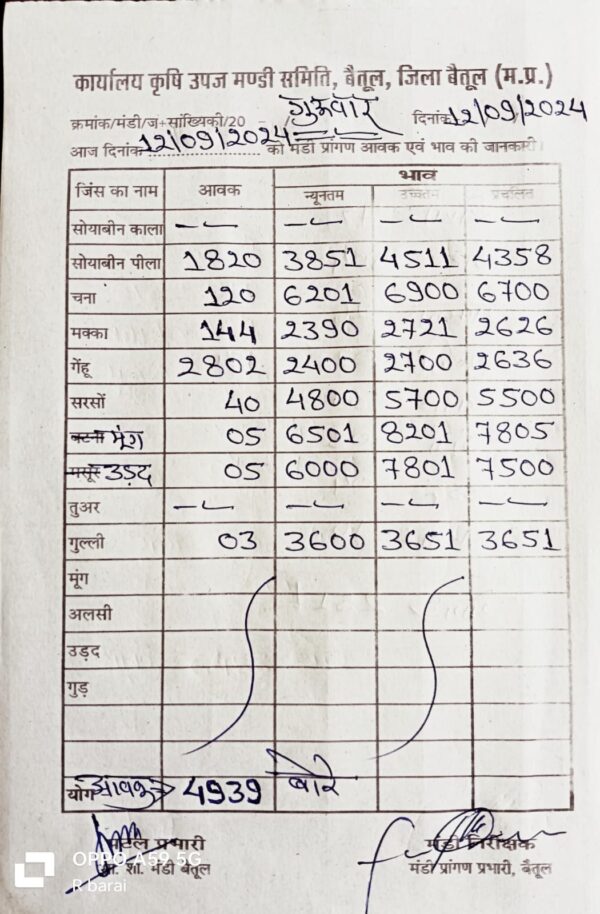 कार्यालय कृषि उपज मण्डी समिति, बैतूल, जिला बैतूल (म.प्र.)
क्रमांक/मंडी/ज+सांख्यिकी/20 - / गुरूवार दिनांक 12/09/2024
आज दिनांक 12/09/2024 को मंडी प्रांगण आवक एवं भाव की जानकारी।
जिंस का नाम आवक भाव
न्यूनतम उच्चतम प्रचलित
सोयाबीन काला -- -- -- --
सोयाबीन पीला 1820 3851 4511 4358
चना 120 6201 6900 6700
मक्का 144 2390 2721 2626
गेंहू 2802 2400 2700 2636
सरसों 40 4800 5700 5500
बटना मूंग 05 6501 8201 7805
मसूर उड़द 05 6000 7801 7500
तुअर -- -- -- --
गुल्ली 03 3600 3651 3651
मूंग
अलसी
उड़द
गुड़
योग आवक → 4939 बोरे
पटल प्रभारी मंडी निरीक्षक
शा. मंडी बैतूल मंडी प्रांगण प्रभारी, बैतूल
OPPO A59 5G
R barai